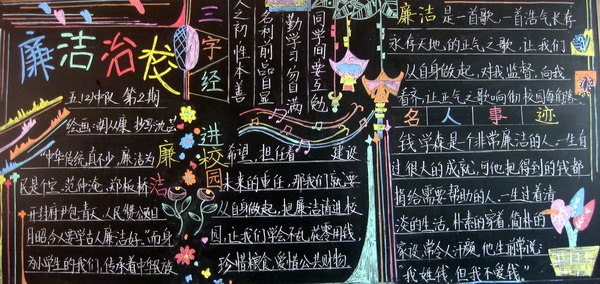 廉洁治校
五.12中队 第2期
"中华传统,真不少,廉洁为
民是个宝,范仲淹,郑板桥
开封府尹包青天,人民赞公颂日
月昭今人要学古人廉洁好。"而身
为小学生的我们,传承着中华民族
三字经
人之初 性本善
名利前 品自显
勤学习 勿自满
同学间 要互勉
廉洁进校园
希望,担任着 建设
未来的重任,那我们就要
从自身做起,把廉洁请进校
园,让我们学会不乱花零用钱,
珍惜粮食、爱惜公共财物.
廉洁是一首歌,一首浩气长存
永存天地的正气之歌,让我们
从自身做起,对我监督,向我
看齐,让正气之歌响彻校园每个角落.
名人事迹
钱学森是个非常廉洁的人,一生有
过很大的成就,可他把得到的钱都
捐给需要帮助的人,一生过着清
淡的生活,朴素的穿着,简朴的
家设,常令人汗颜,他生前常说:
"我姓钱,但我不爱钱。"